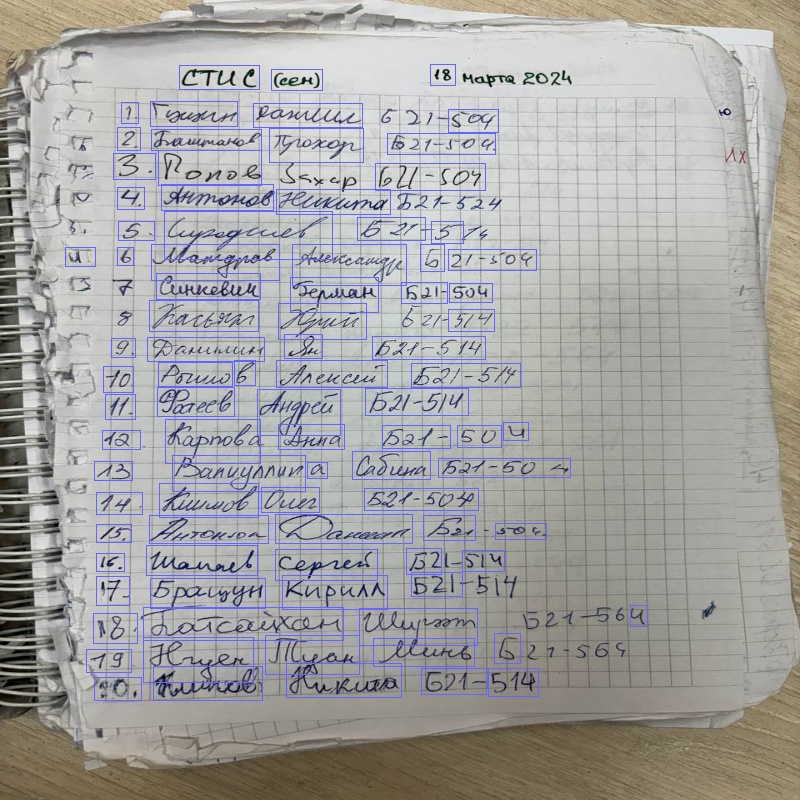 СТИС (сем) 18 марта 2024
1. Даниил Б21-504
2. Баштанов Прохор Б21-504
3. Попов Захар Б21-504
4. Антонов Никита Б21-524
5. Б21-514
6 Александр Б21-504
7 Синкевич Герман Б21-504
8 Касьян Юрий Б21-514
9. Данилин Ян Б21-514
10. Рыжов Алексей Б21-514
11. Фатеев Андрей Б21-514
12. Карпова Анна Б21-504
13 Валиуллина Сабина Б21-504
14. Климов Олег Б21-504
15. Б21-504
16. Шамаев Сергей Б21-514
17. Бращун Кирилл Б21-514
18. Батсайхан Б21-564
19 Нгуен Туан Минь Б21-564
20. Никита Б21-514